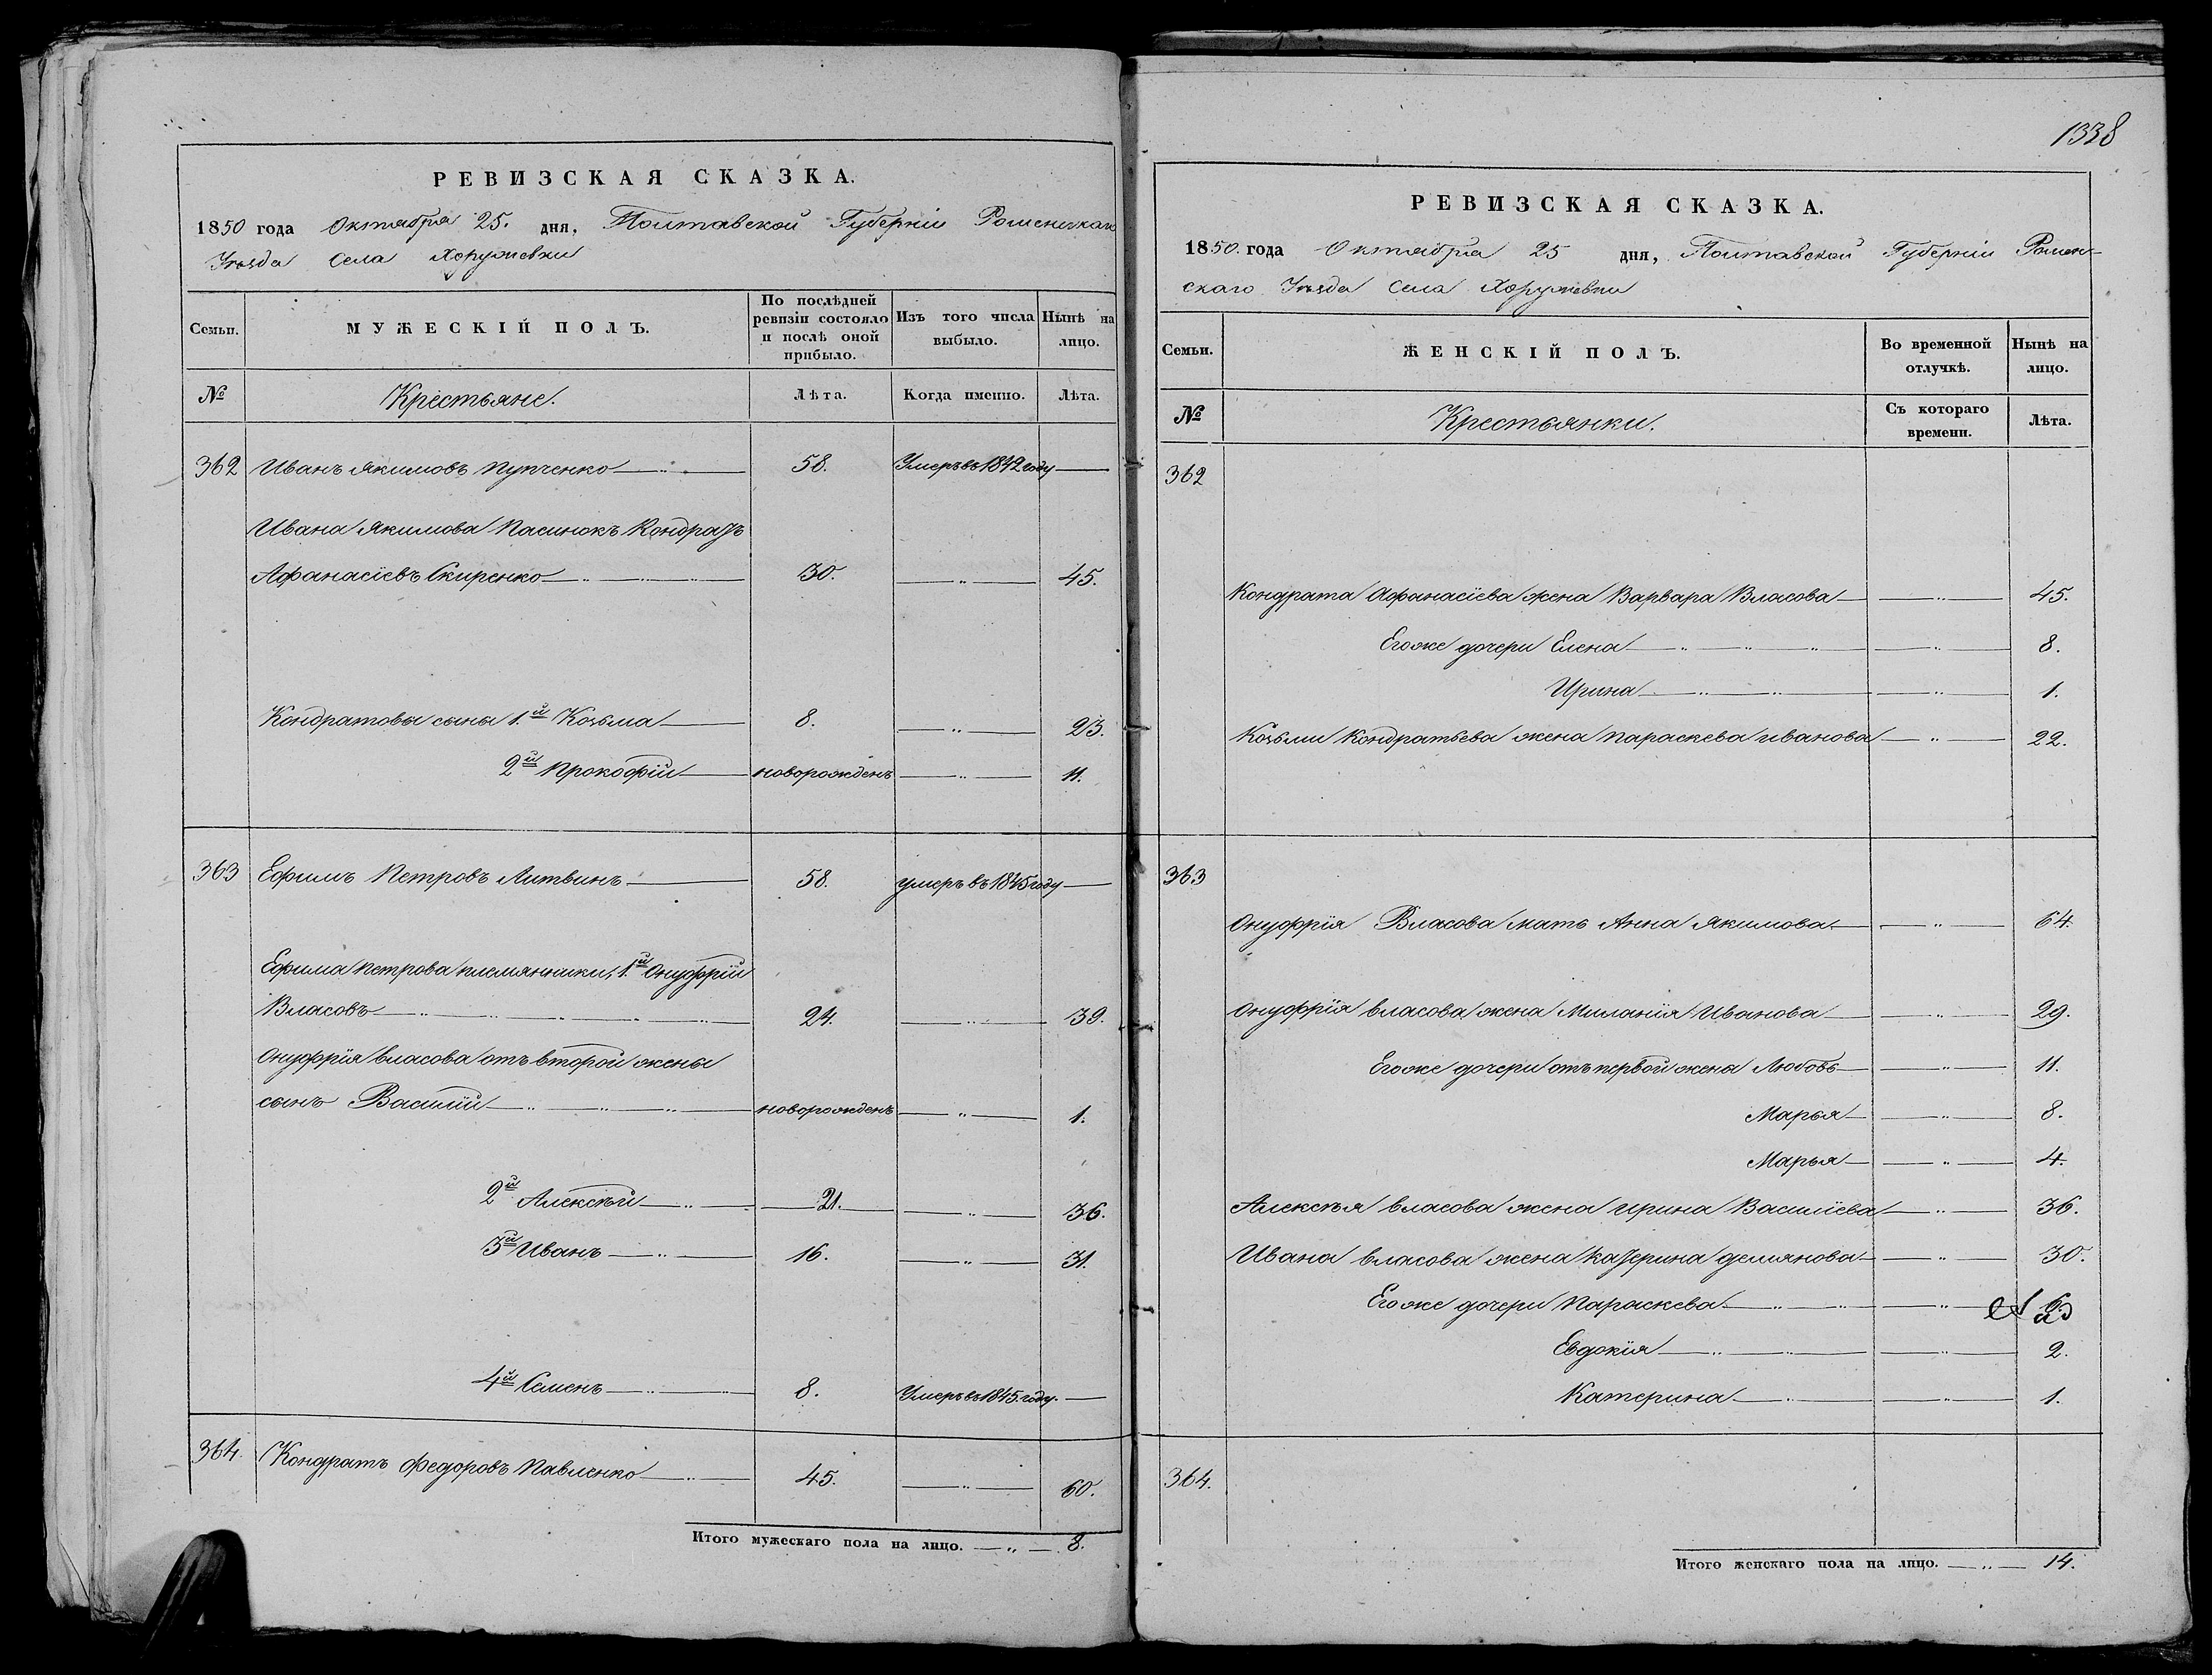 РЕВИЗСКАЯ СКАЗКА.
1850 года Октября 25. дня, Полтавской Губерніи Роменскаго
Уѣзда Села Хоружевки
Семьи. МУЖЕСКІЙ ПОЛЪ. По послѣдней ревизіи состояло и послѣ оной прибыло. Изъ того числа выбыло. Нынѣ на лицо.
№ Крестьяне. Лѣта. Когда именно. Лѣта.
362 Иванъ Якимовъ Пупченко — 58. Умеръ въ 1842 году —
Ивана Якимова Пасинокъ Кондратъ
Афанасіевъ Скиренко — 30. — " — 45.
Кондратовы сыны 1.й Козьма — 8. — " — 23.
2й Прокофій — новорожденъ — " — 11.
363 Ефимъ Петровъ Литвинъ — 58. умеръ въ 1845 году —
Ефима Петрова племянники, 1.й Онуфрій
Власовъ — 24. — " — 39.
Онуфрія Власова отъ второй жены
сынъ Василій — новорожденъ — " — 1.
2й Алексѣй — 21. — " — 36.
3й Иванъ — 16. — " — 31.
4й Семенъ — 8. Умеръ въ 1845. году. —
364. Кондратъ Федоровъ Павленко — 45. — " — 60.
Итого мужескаго пола на лицо. — " — 8.
1338
РЕВИЗСКАЯ СКАЗКА.
1850. года Октября 25 дня, Полтавской Губерніи Ромен-
скаго Уѣзда Села Хоружевки
Семьи. ЖЕНСКІЙ ПОЛЪ. Во временной отлучкѣ. Нынѣ на лицо.
№ Крестьянки. Съ котораго времени. Лѣта.
362
Кондрата Афанасіева жена Варвара Власова — " — 45.
Егоже дочери Елена — " — 8.
Ирина — " — 1.
Козьми Кондратьева жена Параскева Иванова — " — 22.
363
Онуфрія Власова мать Анна Якимова — " — 64.
Онуфрія Власова жена Миланія Иванова — " — 29.
Егоже дочери отъ первой жены Любовь — " — 11.
Марья — " — 8.
Марья — " — 4.
Алексѣя Власова жена Ирина Василіева — " — 36.
Ивана Власова жена Катерина Демянова — " — 30.
Егоже дочери Параскева — " — 6.
Евдокія — " — 2.
Катерина — " — 1.
364.
Итого женскаго пола на лицо. — " — 14.